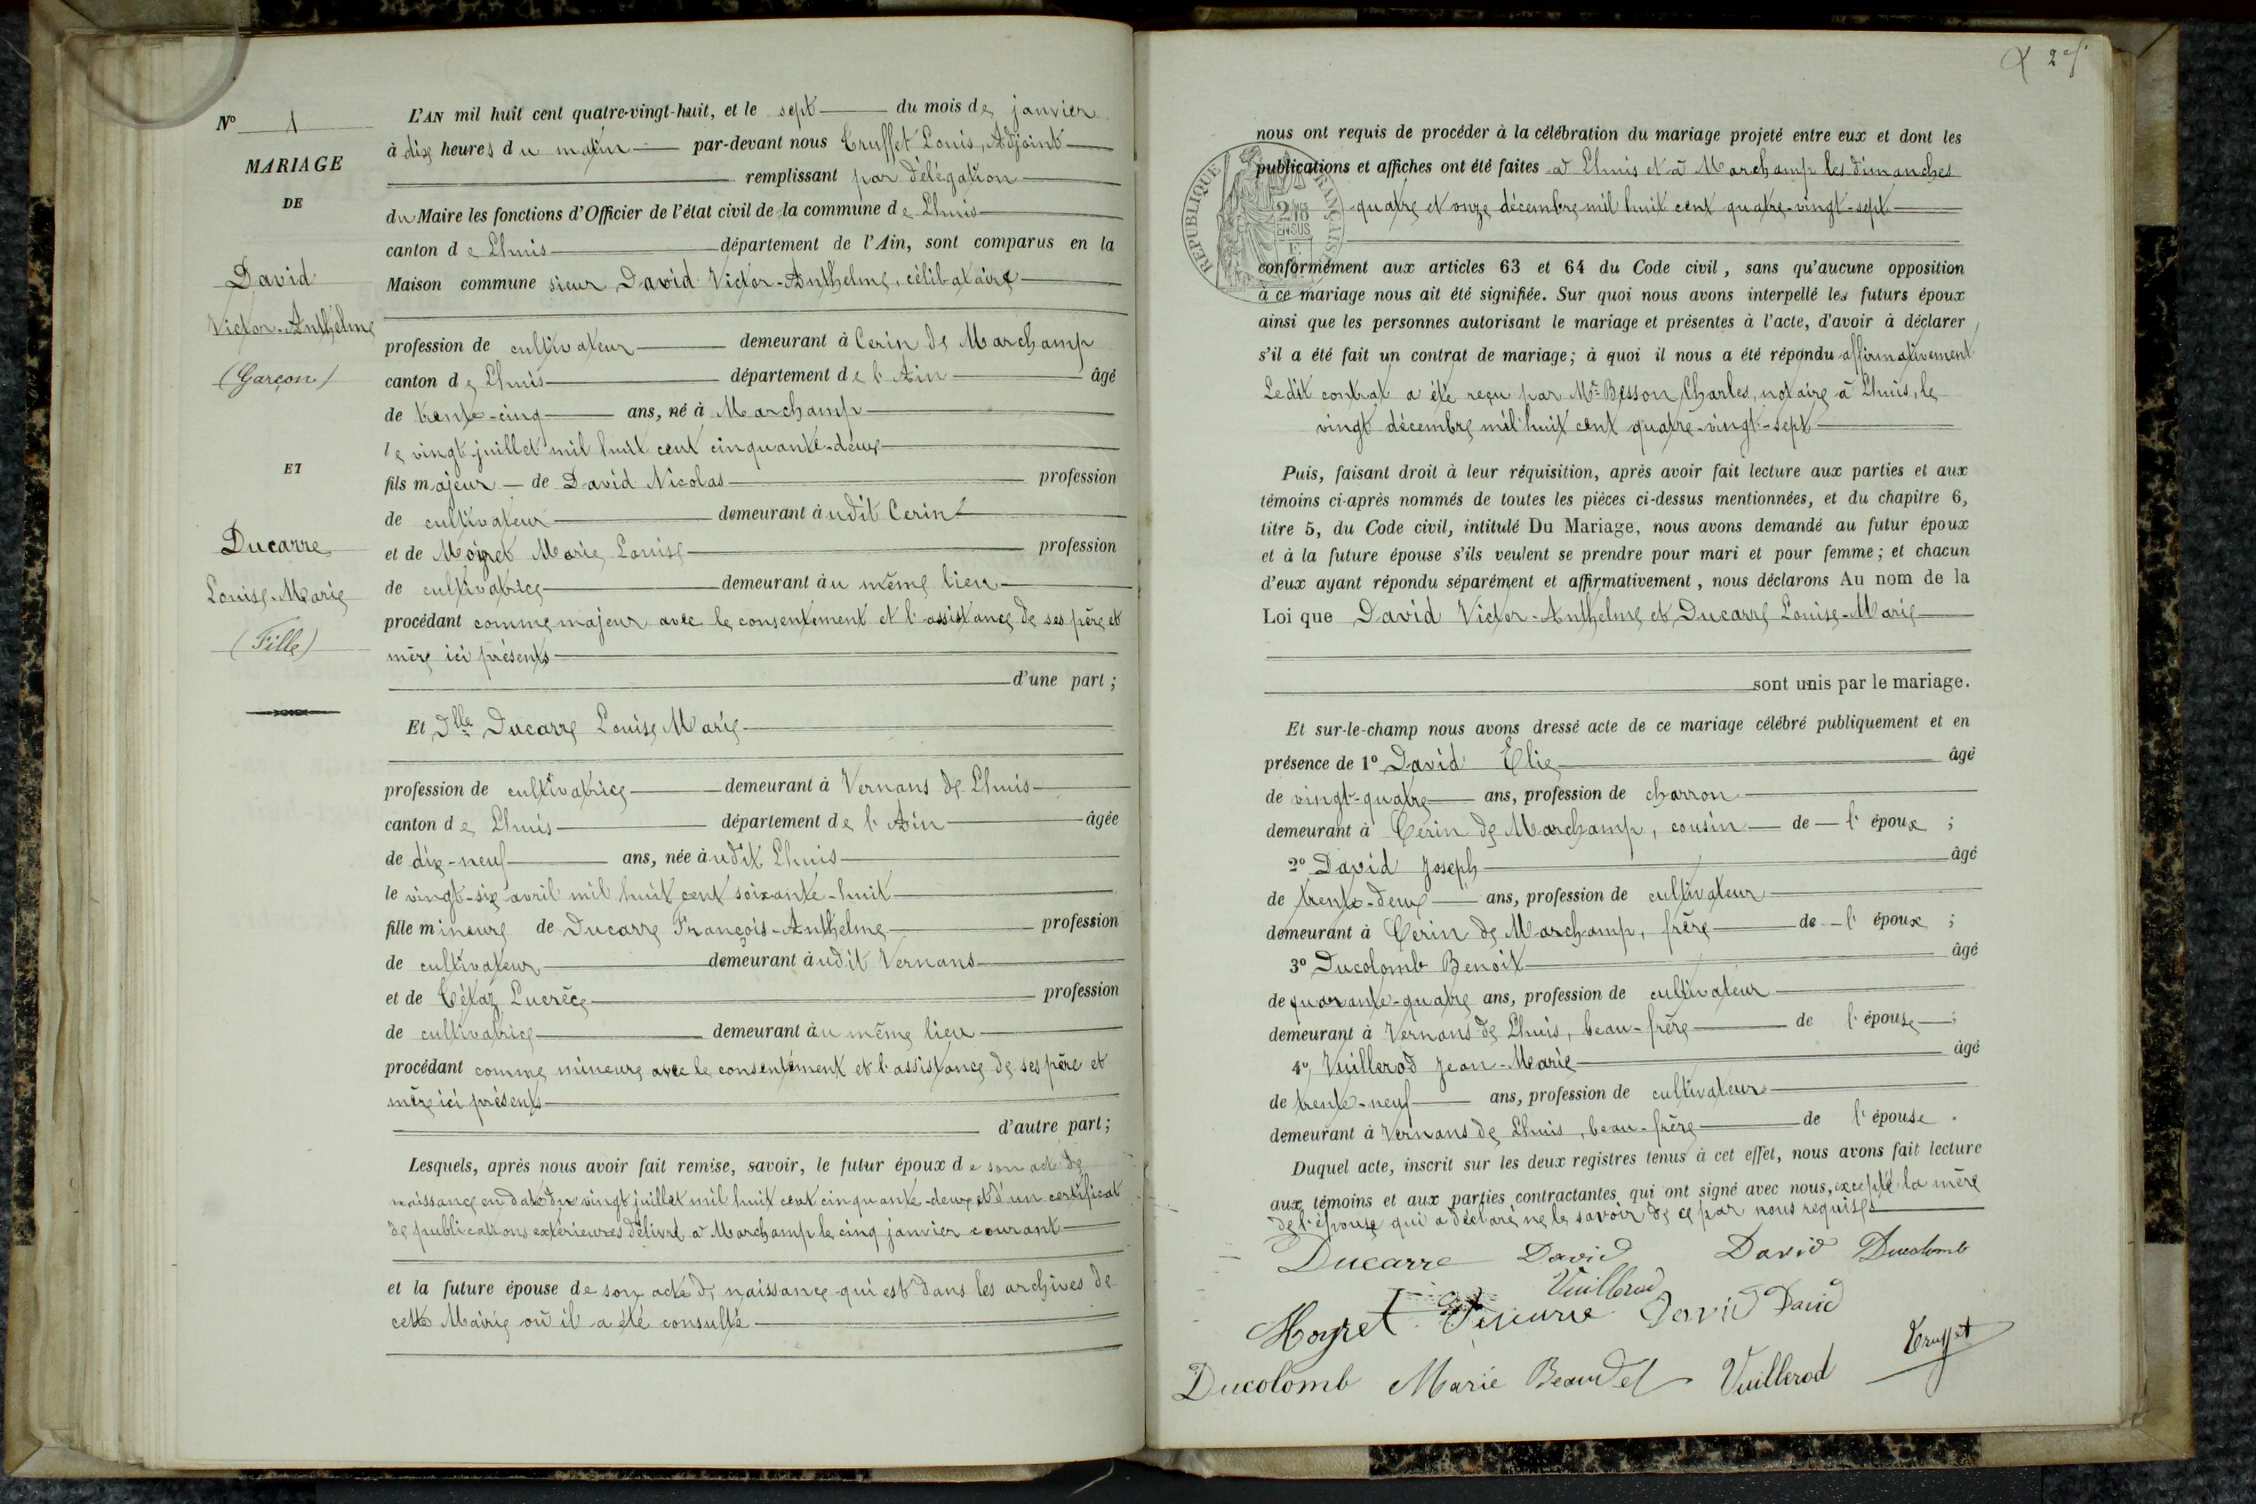 N° 1
MARIAGE
DE
David
Victor-Anthelme
(Garçon)
ET
Ducarre
Louise-Marie
(Fille)
L'AN mil huit cent quatre-vingt-huit, et le sept du mois de janvier
à dix heures du matin par-devant nous Truffet Louis, Adjoint
remplissant par délégation
du Maire les fonctions d'Officier de l'état civil de la commune de Lhuis
canton de Lhuis département de l'Ain, sont comparus en la
Maison commune sieur David Victor-Anthelme, célibataire
profession de cultivateur demeurant à Cerin de Marchamp
canton de Lhuis département de l'Ain âgé
de trente-cinq ans, né à Marchamp
le vingt juillet mil huit cent cinquante-deux
fils majeur de David Nicolas profession
de cultivateur demeurant àudit Cerin
et de Moiret Marie Louise profession
de cultivatrice demeurant àu même lieu
procédant comme majeur avec le consentement et l'assistance de ses père et
mère ici présents
d'une part ;
Et Dlle Ducarre Louise Marie
profession de cultivatrice demeurant à Vernans de Lhuis
canton de Lhuis département de l'Ain âgée
de dix-neuf ans, née àudit Lhuis
le vingt-six avril mil huit cent soixante-huit
fille mineure de Ducarre François-Anthelme profession
de cultivateur demeurant àudit Vernans
et de Tétaz Lucrèce profession
de cultivatrice demeurant àu même lieu
procédant comme mineure avec le consentement et l'assistance de ses père et
mère ici présents
d'autre part ;
Lesquels, après nous avoir fait remise, savoir, le futur époux de son acte de
naissance en date du vingt juillet mil huit cent cinquante-deux et d'un certificat
de publications extérieures délivré à Marchamp le cinq janvier courant
et la future épouse de son acte de naissance qui est dans les archives de
cette Mairie où il a été consulté
nous ont requis de procéder à la célébration du mariage projeté entre eux et dont les
publications et affiches ont été faites à Lhuis et à Marchamp les dimanches
quatre et onze décembre mil huit cent quatre-vingt-sept
RÉPUBLIQUE FRANÇAISE
conformément aux articles 63 et 64 du Code civil, sans qu'aucune opposition
à ce mariage nous ait été signifiée. Sur quoi nous avons interpellé les futurs époux
ainsi que les personnes autorisant le mariage et présentes à l'acte, d'avoir à déclarer
s'il a été fait un contrat de mariage; à quoi il nous a été répondu affirmativement
Ledit contrat a été reçu par Me Besson Charles, notaire à Lhuis, le
vingt décembre mil huit cent quatre-vingt-sept
Puis, faisant droit à leur réquisition, après avoir fait lecture aux parties et aux
témoins ci-après nommés de toutes les pièces ci-dessus mentionnées, et du chapitre 6,
titre 5, du Code civil, intitulé Du Mariage, nous avons demandé au futur époux
et à la future épouse s'ils veulent se prendre pour mari et pour femme ; et chacun
d'eux ayant répondu séparément et affirmativement, nous déclarons Au nom de la
Loi que David Victor-Anthelme et Ducarre Louise-Marie
sont unis par le mariage.
Et sur-le-champ nous avons dressé acte de ce mariage célébré publiquement et en
présence de 1° David Elie âgé
de vingt-quatre ans, profession de charron
demeurant à Cerin de Marchamp, cousin de l'époux ;
2° David Joseph âgé
de trente-deux ans, profession de cultivateur
demeurant à Cerin de Marchamp, frère de l'époux ;
3° Ducolomb Benoit âgé
de quarante-quatre ans, profession de cultivateur
demeurant à Vernans de Lhuis, beau-frère de l'épouse ;
4° Vuillerod Jean-Marie âgé
de trente-neuf ans, profession de cultivateur
demeurant à Vernans de Lhuis, beau-frère de l'épouse.
Duquel acte, inscrit sur les deux registres tenus à cet effet, nous avons fait lecture
aux témoins et aux parties contractantes qui ont signé avec nous, excepté la mère
de l'épouse qui a déclaré ne le savoir de ce par nous requise
Ducarre David David Ducolomb
Vuillerod
Moyret David David
Truffet
Ducolomb Marie Beaudet Vuillerod